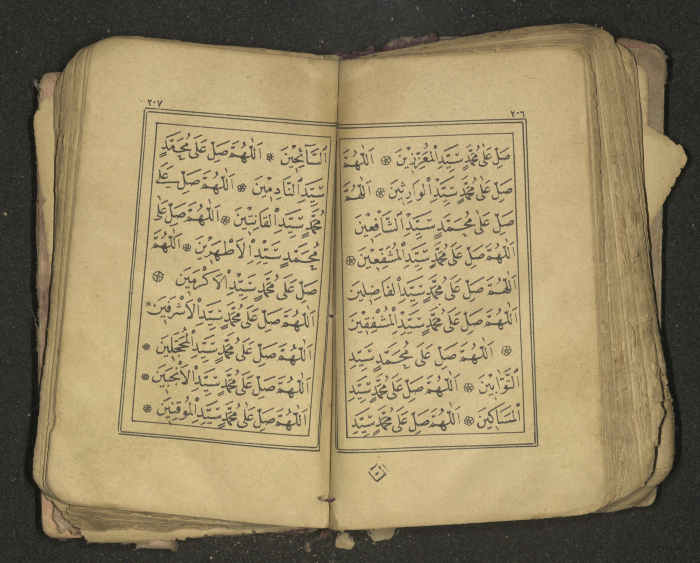 ٢٠٦
صَلِّ عَلٰى مُحَمَّدٍ سَيِّدِ الْمُعَزَّزِينَ ۞ اَللّٰهُمَّ
صَلِّ عَلٰى مُحَمَّدٍ سَيِّدِ الْوَارِثِينَ ۞ اَللّٰهُمَّ
صَلِّ عَلٰى مُحَمَّدٍ سَيِّدِ الشَّافِعِينَ
اَللّٰهُمَّ صَلِّ عَلٰى مُحَمَّدٍ سَيِّدِ الْمُشَفَّعِينَ ۞
اَللّٰهُمَّ صَلِّ عَلٰى مُحَمَّدٍ سَيِّدِ الْفَاضِلِينَ
اَللّٰهُمَّ صَلِّ عَلٰى مُحَمَّدٍ سَيِّدِ الْمُشْفِقِينَ
۞ اَللّٰهُمَّ صَلِّ عَلٰى مُحَمَّدٍ سَيِّدِ
التَّوَّابِينَ ۞ اَللّٰهُمَّ صَلِّ عَلٰى مُحَمَّدٍ سَيِّدِ
الْمَسَاكِينَ ۞ اَللّٰهُمَّ صَلِّ عَلٰى مُحَمَّدٍ سَيِّدِ
٢٠٧
السَّآئِحِينَ ۞ اَللّٰهُمَّ صَلِّ عَلٰى مُحَمَّدٍ
سَيِّدِ النَّادِمِينَ ۞ اَللّٰهُمَّ صَلِّ عَلٰى
مُحَمَّدٍ سَيِّدِ الْقَانِتِينَ ۞ اَللّٰهُمَّ صَلِّ عَلٰى
مُحَمَّدٍ سَيِّدِ الْاَطْهَرِينَ ۞ اَللّٰهُمَّ
صَلِّ عَلٰى مُحَمَّدٍ سَيِّدِ الْاَكْرَمِينَ ۞
اَللّٰهُمَّ صَلِّ عَلٰى مُحَمَّدٍ سَيِّدِ الْاَشْرَفِينَ ۞
اَللّٰهُمَّ صَلِّ عَلٰى مُحَمَّدٍ سَيِّدِ الْمُحَجَّلِينَ ۞
اَللّٰهُمَّ صَلِّ عَلٰى مُحَمَّدٍ سَيِّدِ الْاَنْجَبِينَ ۞
اَللّٰهُمَّ صَلِّ عَلٰى مُحَمَّدٍ سَيِّدِ الْمُوقِنِينَ ۞